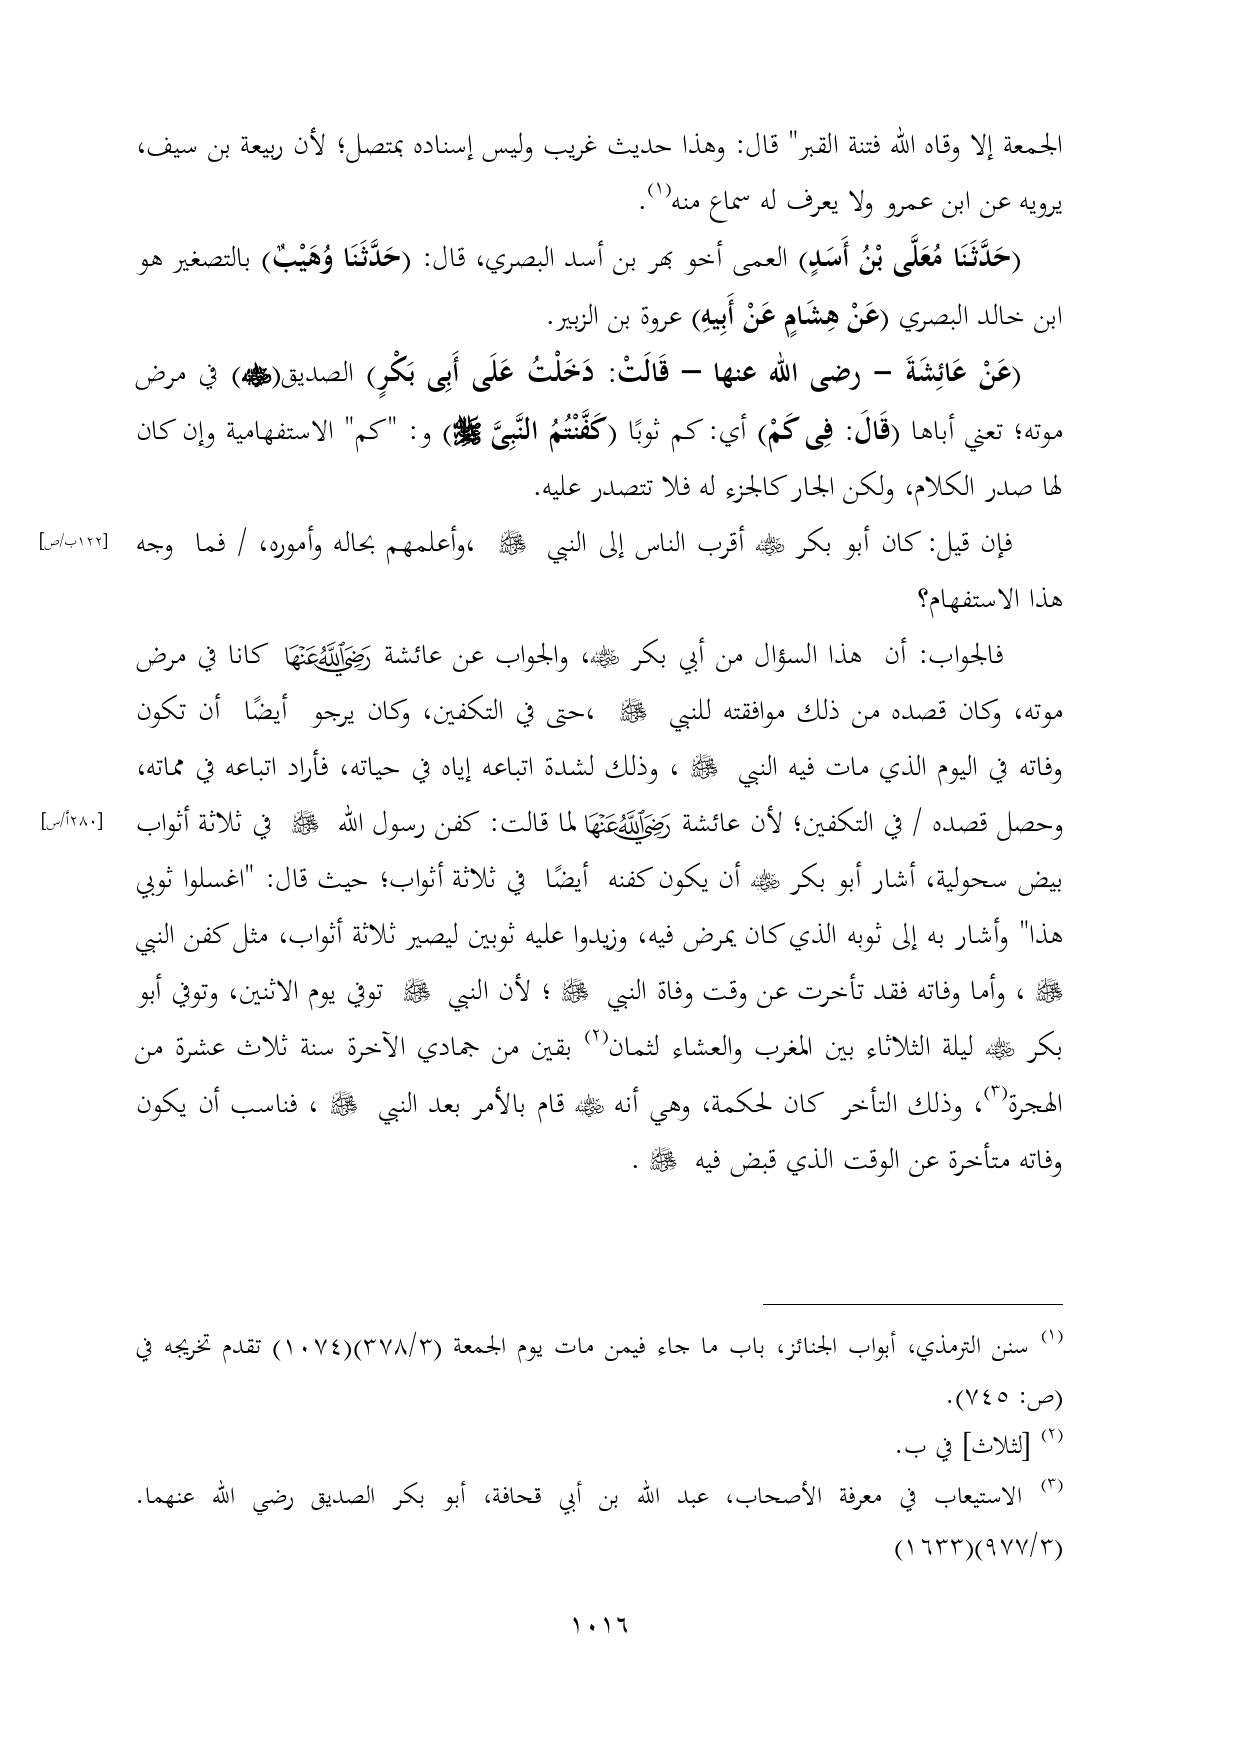 الجمعة إلا وقاه الله فتنة القبر" قال: وهذا حديث غريب وليس إسناده بمتصل؛ لأن ربيعة بن سيف،
يرويه عن ابن عمرو ولا يعرف له سماع منه(١).
(حَدَّثَنَا مُعَلَّى بْنُ أَسَدٍ) العمى أخو بهر بن أسد البصري، قال: (حَدَّثَنَا وُهَيْبٌ) بالتصغير هو
ابن خالد البصري (عَنْ هِشَامٍ عَنْ أَبِيهِ) عروة بن الزبير.
(عَنْ عَائِشَةَ – رضى الله عنها – قَالَتْ: دَخَلْتُ عَلَى أَبِى بَكْرٍ) الصديق(﵁) في مرض
موته؛ تعني أباها (قَالَ: فِى كَمْ) أي: كم ثوبًا (كَفَّنْتُمُ النَّبِىَّ ﷺ) و: "كم" الاستفهامية وإن كان
لها صدر الكلام، ولكن الجار كالجزء له فلا تتصدر عليه.
فإن قيل: كان أبو بكر ﵁ أقرب الناس إلى النبي ﷺ ،وأعلمهم بحاله وأموره، / فما وجه
[١٢٢ب/ص]
هذا الاستفهام؟
فالجواب: أن هذا السؤال من أبي بكر ﵁، والجواب عن عائشة رَضِيَ اللَّهُ عَنْهَا كانا في مرض
موته، وكان قصده من ذلك موافقته للنبي ﷺ ،حتى في التكفين، وكان يرجو أيضًا أن تكون
وفاته في اليوم الذي مات فيه النبي ﷺ ، وذلك لشدة اتباعه إياه في حياته، فأراد اتباعه في مماته،
وحصل قصده / في التكفين؛ لأن عائشة رَضِيَ اللَّهُ عَنْهَا لما قالت: كفن رسول الله ﷺ في ثلاثة أثواب
[٢٨٠أ/س]
بيض سحولية، أشار أبو بكر ﵁ أن يكون كفنه أيضًا في ثلاثة أثواب؛ حيث قال: "اغسلوا ثوبي
هذا" وأشار به إلى ثوبه الذي كان يمرض فيه، وزيدوا عليه ثوبين ليصير ثلاثة أثواب، مثل كفن النبي
ﷺ ، وأما وفاته فقد تأخرت عن وقت وفاة النبي ﷺ ؛ لأن النبي ﷺ توفي يوم الاثنين، وتوفي أبو
بكر ﵁ ليلة الثلاثاء بين المغرب والعشاء لثمان(٢) بقين من جمادي الآخرة سنة ثلاث عشرة من
الهجرة(٣)، وذلك التأخر كان لحكمة، وهي أنه ﵁ قام بالأمر بعد النبي ﷺ ، فناسب أن يكون
وفاته متأخرة عن الوقت الذي قبض فيه ﷺ .
(١) سنن الترمذي، أبواب الجنائز، باب ما جاء فيمن مات يوم الجمعة (٣٧٨/٣)(١٠٧٤) تقدم تخريجه في
(ص: ٧٤٥).
(٢) [لثلاث] في ب.
(٣) الاستيعاب في معرفة الأصحاب، عبد الله بن أبي قحافة، أبو بكر الصديق رضي الله عنهما.
(٩٧٧/٣)(١٦٣٣)
١٠١٦